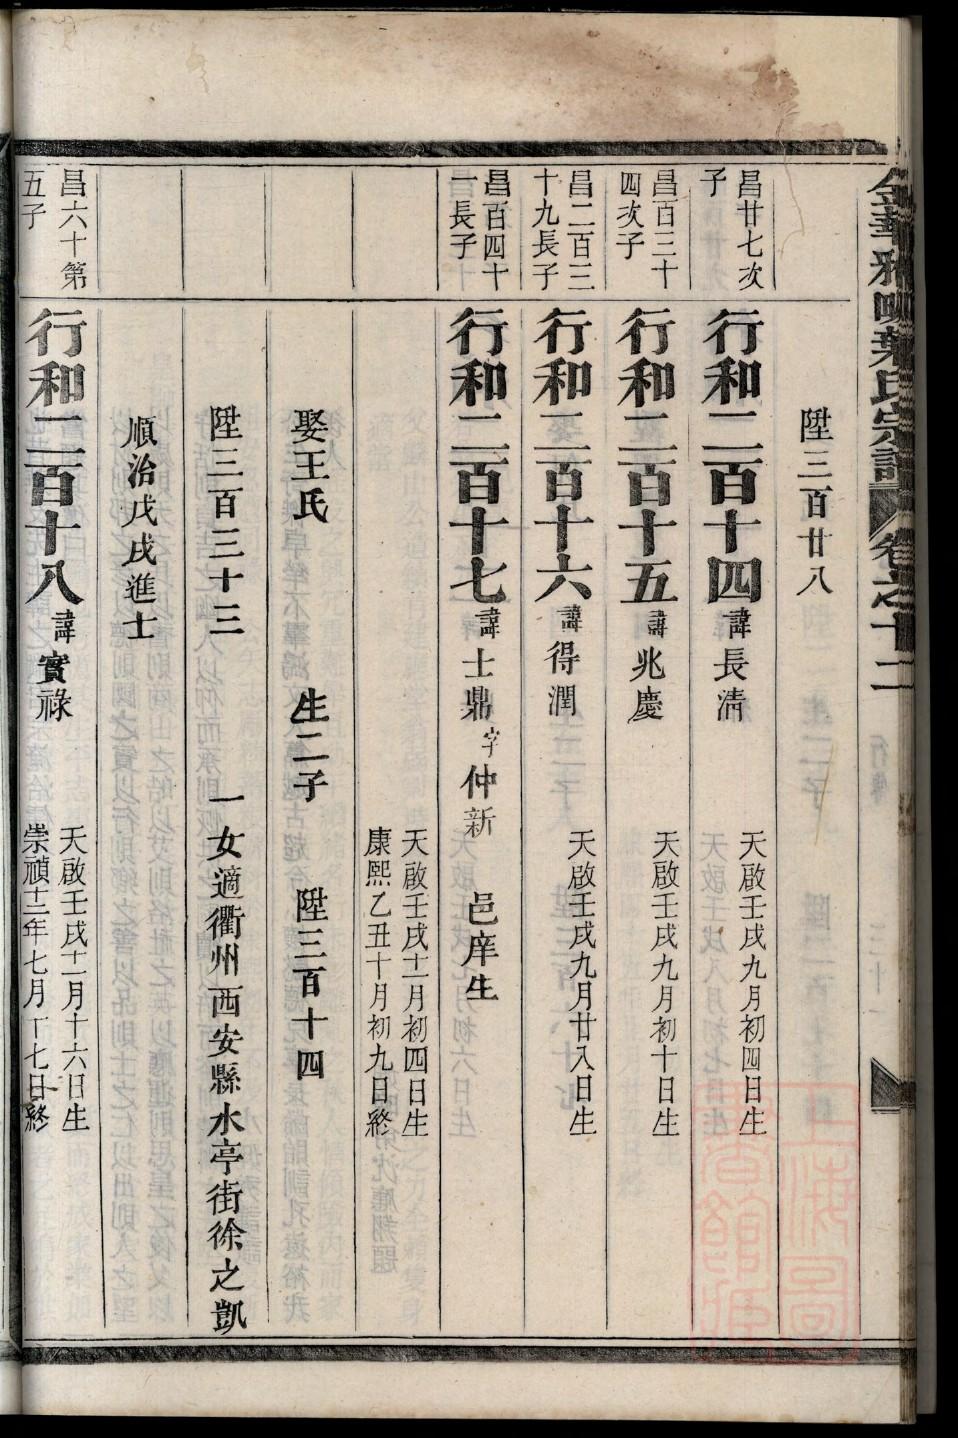 金華雅畈葉氏宗譜 卷之十二
陞三百廿八
昌廿七次子
行和二百十四 諱長清 天啟壬戌九月初四日生
昌百三十四次子
行和二百十五 諱兆慶 天啟壬戌九月初十日生
昌二百三十九長子
行和二百十六 諱得潤 天啟壬戌九月廿八日生
昌百四十一長子
行和二百十七 諱士鼎 字仲新 邑庠生
天啟壬戌十一月初四日生
康熙乙丑十月初九日終
娶王氏 生二子 陞三百十四
陞三百三十三 一女適衢州西安縣水亭街徐之凱
順治戊戌進士
昌六十第五子
行和二百十八 諱實祿
天啟壬戌十一月十六日生
崇禎十二年七月十七日終
上海圖書館藏